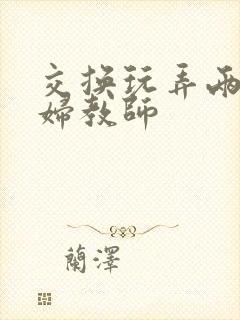 交换玩弄兩
婦教師
蘭澤